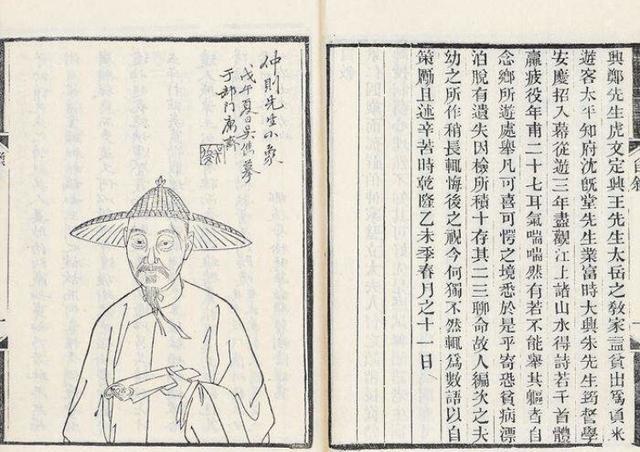 自敘
興鄭先生虎文定興王先生太岳之敎家益貧出爲負米
遊客太平知府沈旣堂先生業富時大興朱先生筠督學
安慶招入幕從遊三年盡觀江上諸山水得詩若千首體
羸疲役年甫二十七耳氣喘喘然有若不能舉其軀者自
念鄉所遊處舉凡可喜可愕之境悉於是乎寄恐貧病漂
泊脫有遺失因檢所積十存其二三聊命故人編次之夫
幼之所作稍長輒悔後之視今何獨不然輒爲數語以自
策勵且述辛苦時乾隆乙未季春月之十一日
仲則先生小象
戊午夏日吳儁摹
于都門寓齋